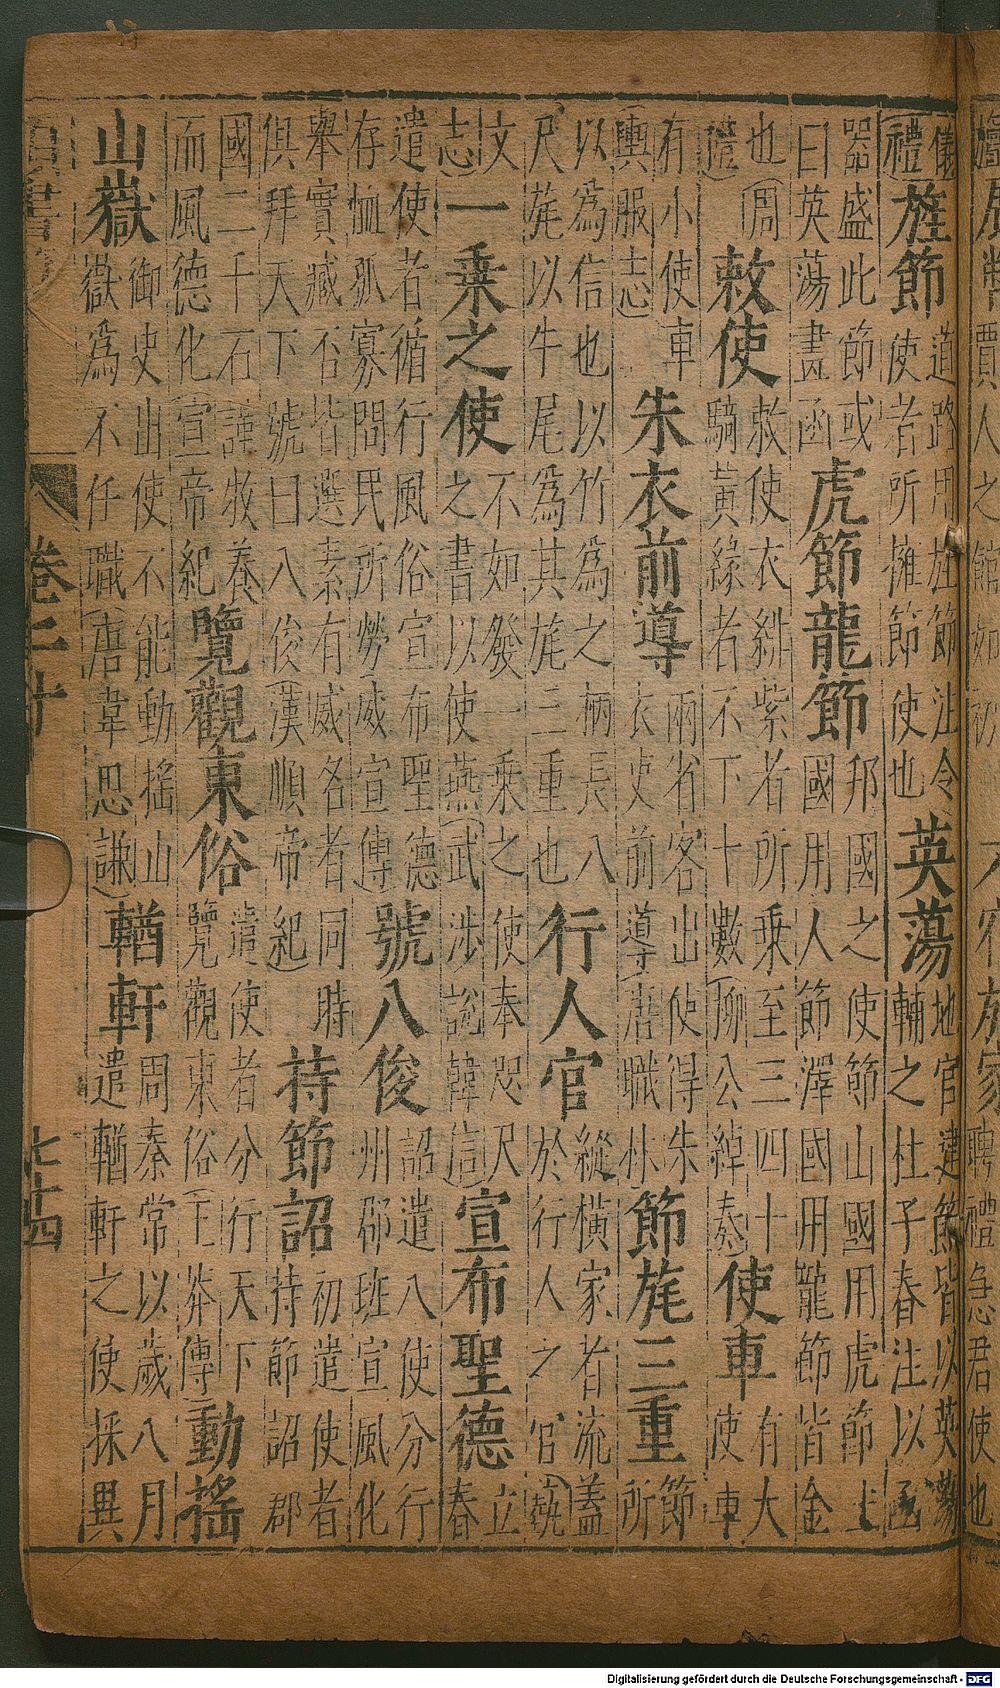 儀禮旌節道路用旌節注令使者所擁節使也英蕩地官建節皆以英蕩輔之杜子春注以函
器盛此節或曰英蕩畫函虎節龍節邦國之使節山國用虎節土國用人節澤國用龍節皆金
也周禮敕使敕使衣緋紫者所乘至三四十騎黃綠者不下十數柳公綽奏使車有大使車
有小使車輿服志朱衣前導兩省客出使得朱衣吏前導唐職林節旄三重節所
以為信也以竹為之柄長八尺旄以牛尾為其旄三重也行人官縱橫家者流蓋於行人之官藝
文志一乘之使不如發一乘之使奉咫尺之書以使燕武涉說韓信宣布聖德立春
遣使者循行風俗宣布聖德存恤孤寡問民所勞威宣傳號八俊詔遣八使分行州郡班宣風化
舉實臧否皆選素有威名者同時俱拜天下號曰八俊漢順帝紀持節詔初遣使者持節詔郡
國二千石謹牧養而風德化宣帝紀覽觀東俗遣使者分行天下覽觀東俗王莽傳動搖
山嶽御史出使不能動搖山嶽為不任職唐韋思謙輶軒周秦常以歲八月遣輶軒之使採異
卷二十
七十四
Digitalisierung gefördert durch die Deutsche Forschungsgemeinschaft - DFG